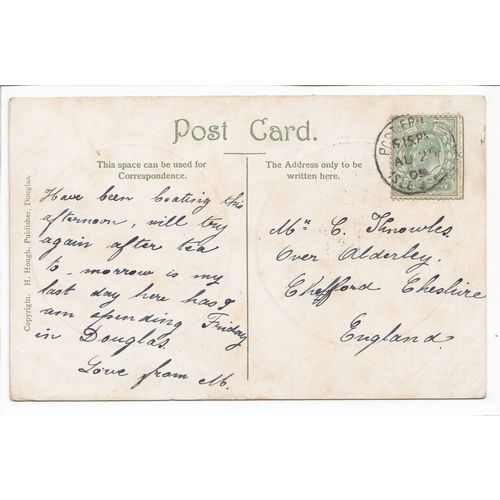 Post Card.
This space can be used for
Correspondence.
The Address only to be
written here.
Copyright. H. Hough, Publisher, Douglas.
Have been boating this
afternoon, will try
again after tea
to-morrow is my
last day here has I
am spending Friday
in Douglas.
Love from M.
Mr C. Knowles
Over Alderley,
Chelford Cheshire
England.
PORT ERIN
5.15 PM
AU 2
09
ISLE